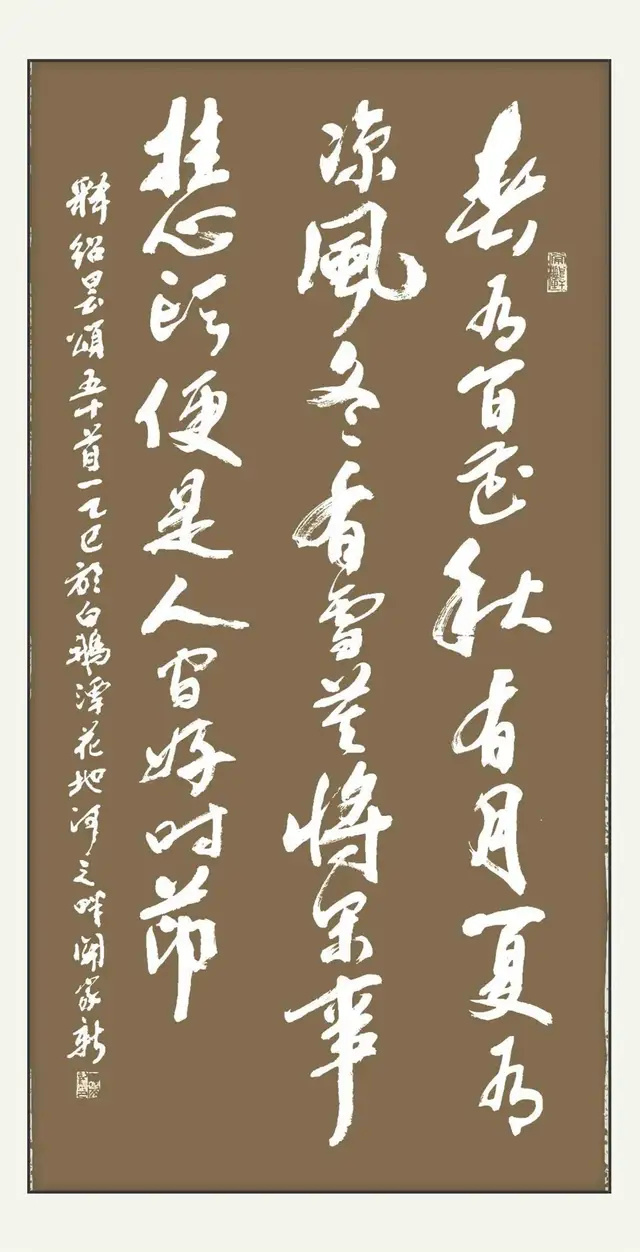 春有百花秋有月夏有
凉風冬有雪莫將閑事
挂心頭便是人間好时節
釋紹曇頌五十首一乙巳於白鵝潭花地河之畔關家新